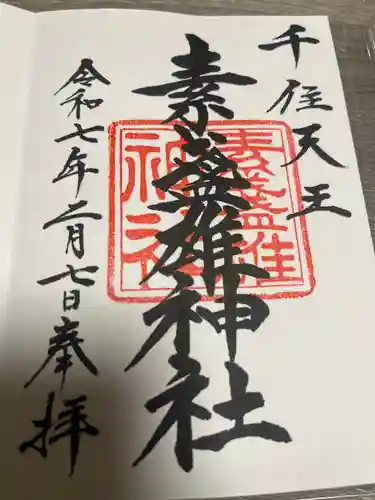 千住天王
素盞雄神社
素盞雄
神社
令和七年二月七日奉拝